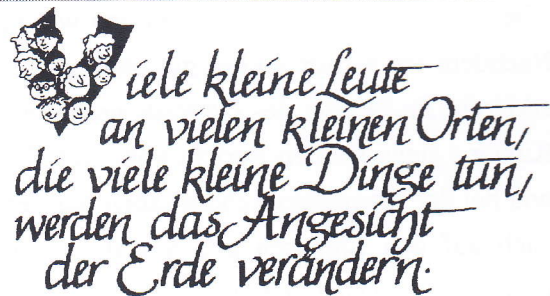 Viele kleine Leute
an vielen kleinen Orten,
die viele kleine Dinge tun,
werden das Angesicht
der Erde verändern.